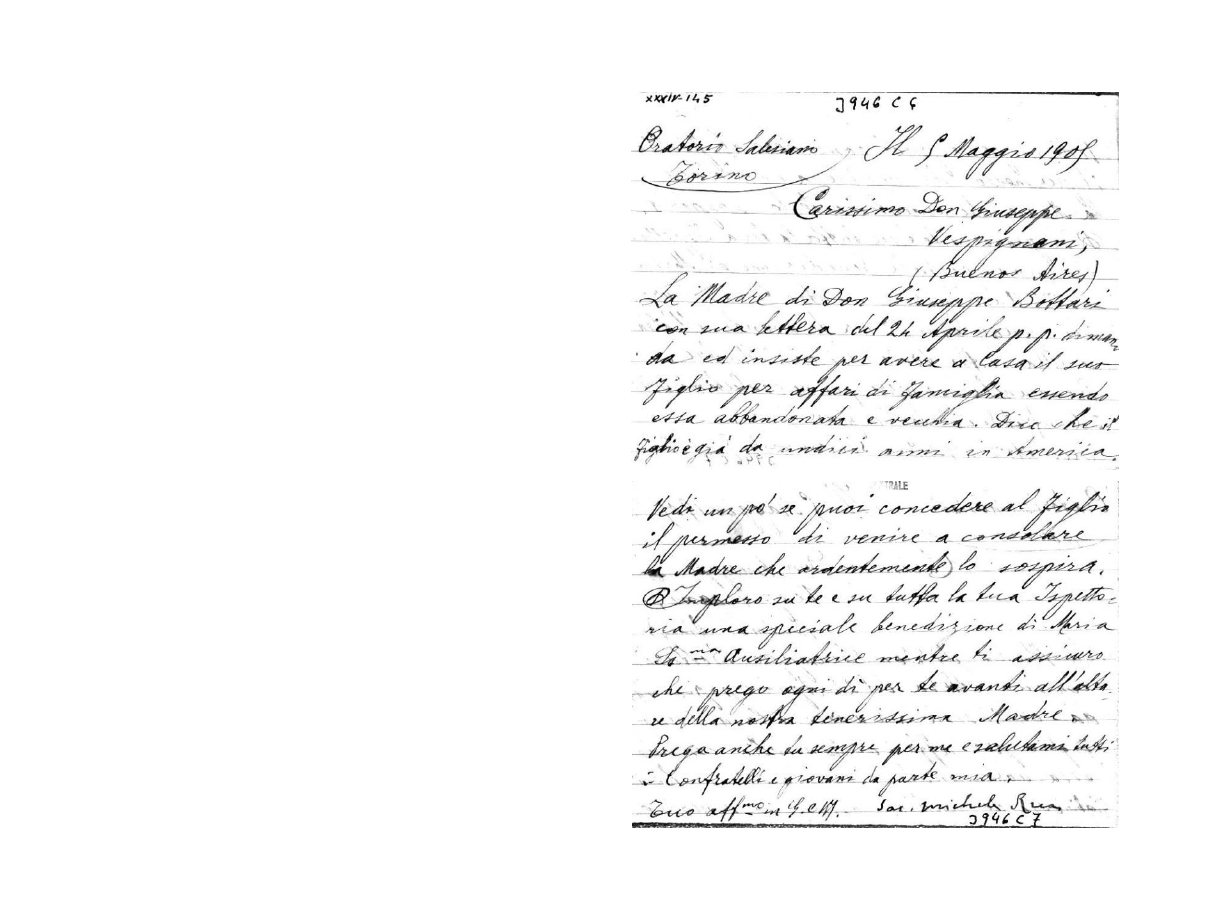 XXXIV-145
3946 C 6
Oratorio Salesiano
Torino
Il 5 Maggio 1905
Carissimo Don Giuseppe
Vespignani,
(Buenos Aires)
La Madre di Don Giuseppe Bottari
con sua lettera del 24 Aprile p. p. diman
da ed insiste per avere a casa il suo
figlio per affari di famiglia essendo
essa abbandonata e vecchia. Dice che il
figlio è già da undici anni in America.
TRALE
Vedi un po' se puoi concedere al figlio
il permesso di venire a consolare
la Madre che ardentemente lo sospira.
Imploro su te e su tutta la tua Ispetto-
ria una speciale benedizione di Maria
SS.ma Ausiliatrice mentre ti assicuro
che prego ogni dì per te avanti all'alta
re della nostra tenerissima Madre.
Prega anche tu sempre per me e salutami tutti
i Confratelli e giovani da parte mia.
Tuo aff.mo in G. e M. Sac. Michele Rua
3946 C 7